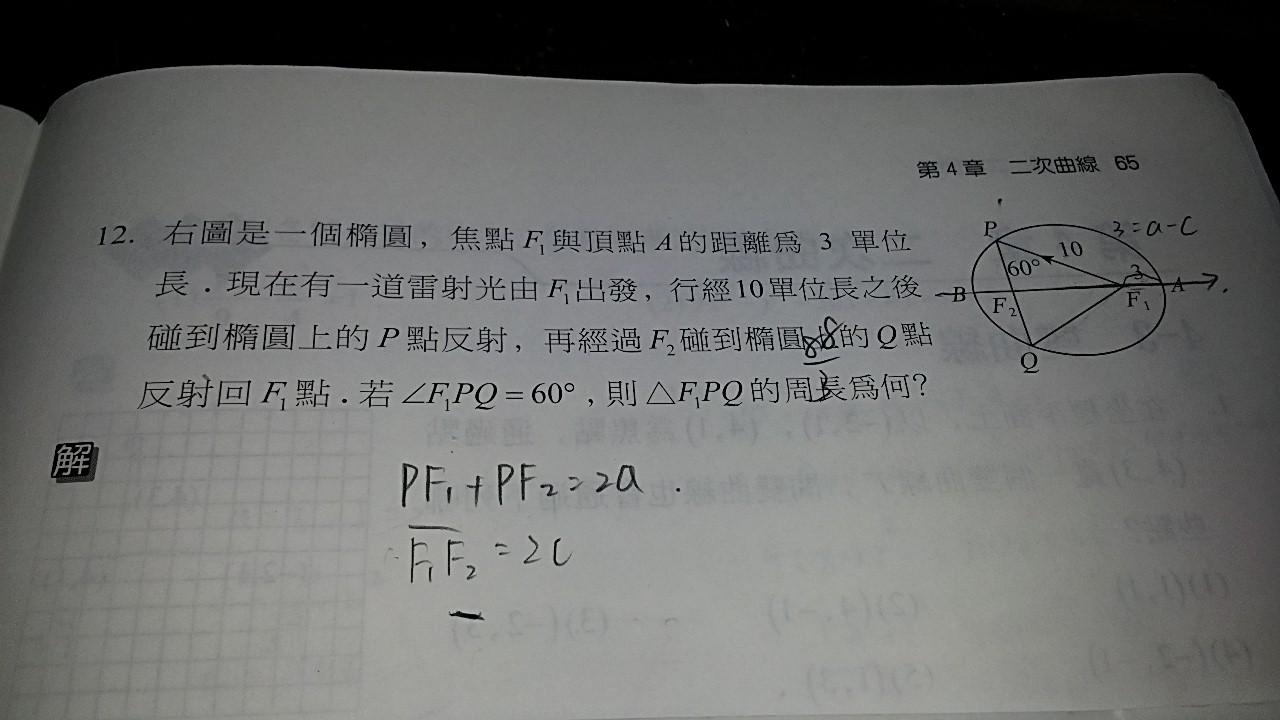 第4章 二次曲線 65
12. 右圖是一個橢圓，焦點F₁與頂點A的距離為 3 單位
長．現在有一道雷射光由F₁出發，行經10單位長之後
碰到橢圓上的P點反射，再經過F₂碰到橢圓上的Q點
反射回F₁點．若∠F₁PQ=60°，則△F₁PQ的周長為何？
88
3
P
3=a-c
10
60°
3
B
F₂
F₁
A
Q
解
PF₁+PF₂=2a.
F₁F₂=2c